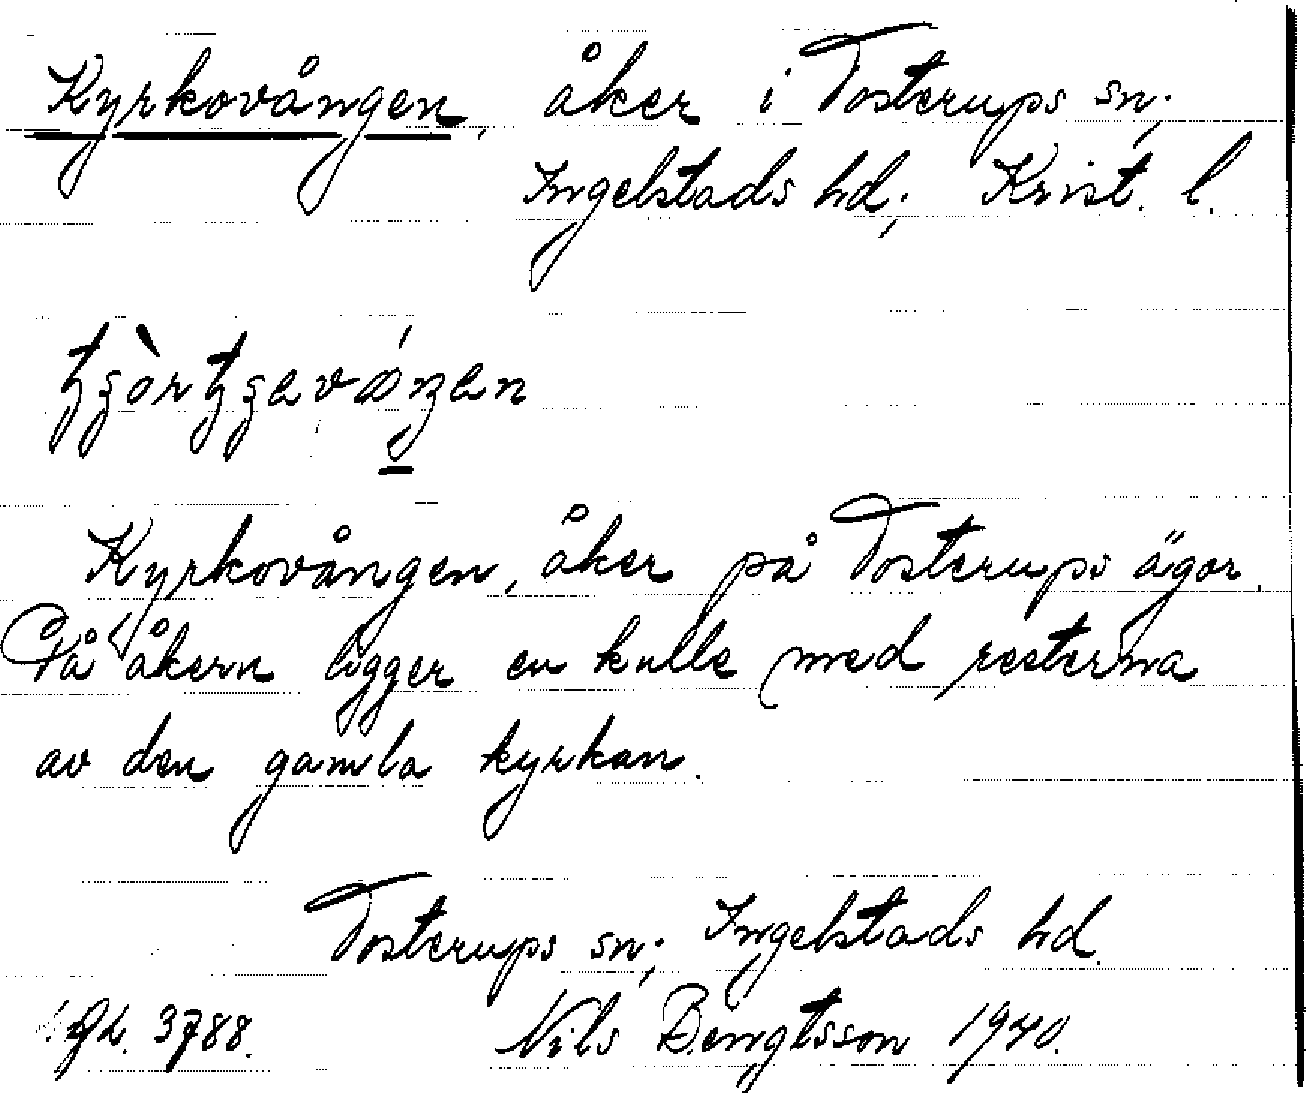 Kyrkovången, åker i Tosterups sn;
Ingelstads hd; Krist. l.
Kyrkovången, åker på Tosterups ägor.
På åkern ligger en kulle med resterna
av den gamla kyrkan.
Tosterups sn; Ingelstads hd.
3788. Nils Bengtsson 1940.